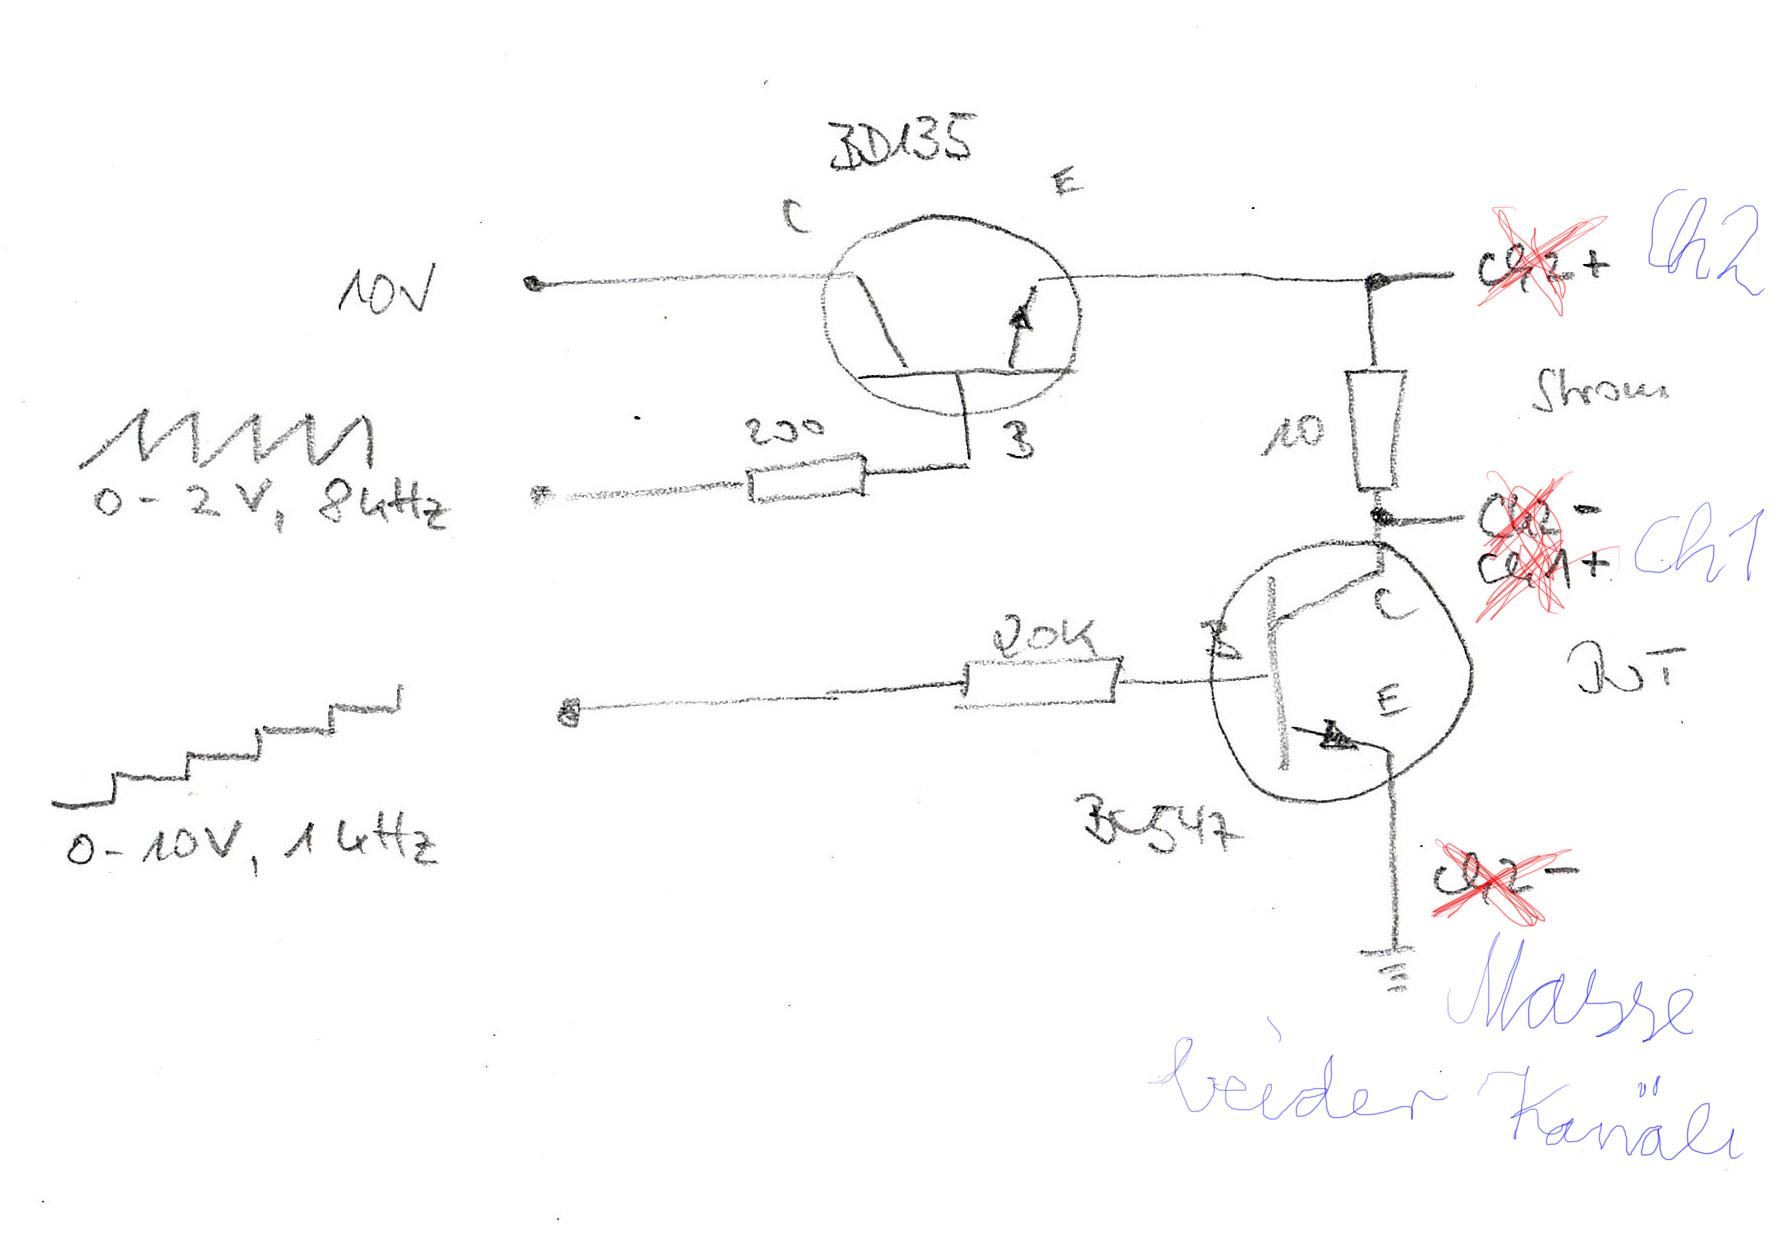 BD135
C
E
10V
Ch2+
Ch2
Strom
200
B
10
0-2V, 8kHz
Ch2-
Ch1+
Ch1
C
20K
B
E
DUT
BC547
0-10V, 1kHz
Ch2-
Masse
beider Kanäle